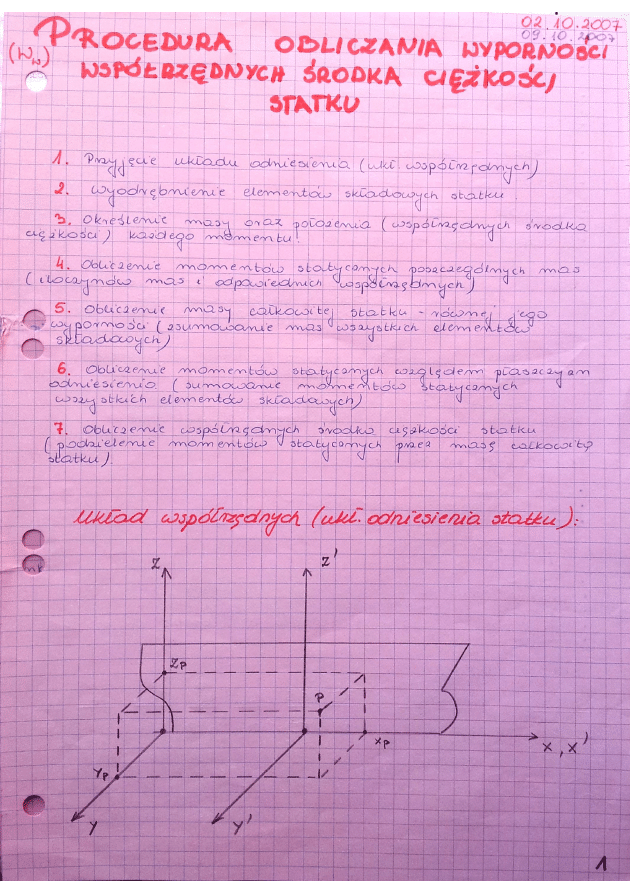 02.10.2007
09.10.2007
(Ww) PROCEDURA OBLICZANIA WYPORNOŚCI
WSPÓŁRZĘDNYCH ŚRODKA CIĘŻKOŚCI
STATKU
1. Przyjęcie układu odniesienia (ukł. współrzędnych)
2. wyodrębnienie elementów składowych statku
3. Określenie masy oraz położenia (współrzędnych środka
ciężkości) każdego momentu!
4. Obliczenie momentów statycznych poszczególnych mas
(iloczynów mas i odpowiednich współrzędnych)
5. Obliczenie masy całkowitej statku - równej jego
wyporności (zsumowanie mas wszystkich elementów
składowych)
6. Obliczenie momentów statycznych względem płaszczyzn
odniesienia (sumowanie momentów statycznych
wszystkich elementów składowych)
7. Obliczenie współrzędnych środka ciężkości statku
(podzielenie momentów statycznych przez masę całkowitą
statku).
Układ współrzędnych (ukł. odniesienia statku):
z
z'
zp
P
xp
x, x'
yp
y
y'
1